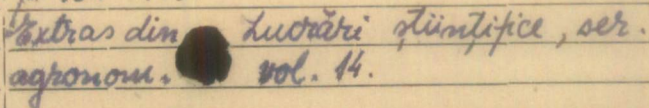 Extras din Lucrări ştiinţifice, ser.
agronom. vol. 14.